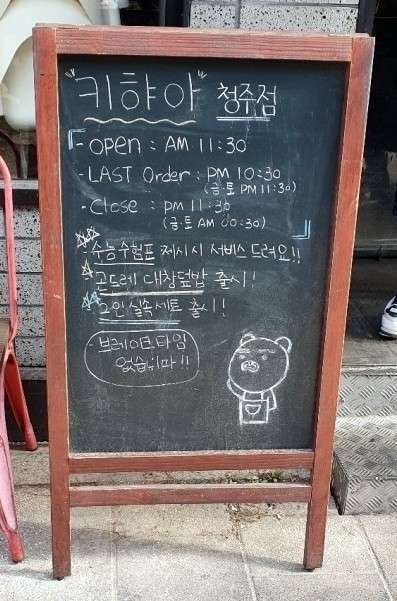 "키햐아" 청주점
- open : AM 11:30
- LAST Order : PM 10:30
(금·토 PM 11:30)
- Close : PM 11:30
(금·토 AM 00:30)
- 수능수험표 제시시 서비스 드려요!!
- 곤드레 대창덮밥 출시!
- 2인 실속세트 출시!!
- 브레이크타임
없습니다!!